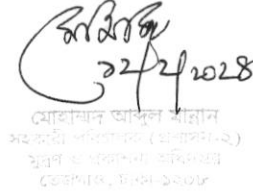 ১২/২/২০২৪
মোহাম্মদ আব্দুল মান্নান
সহকারী পরিচালক (প্রশাসন-২)
মুদ্রণ ও প্রকাশনা অধিদপ্তর
তেজগাঁও, ঢাকা-১২০৮